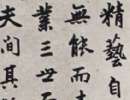 精藝自
無能而
業三世
夫間其